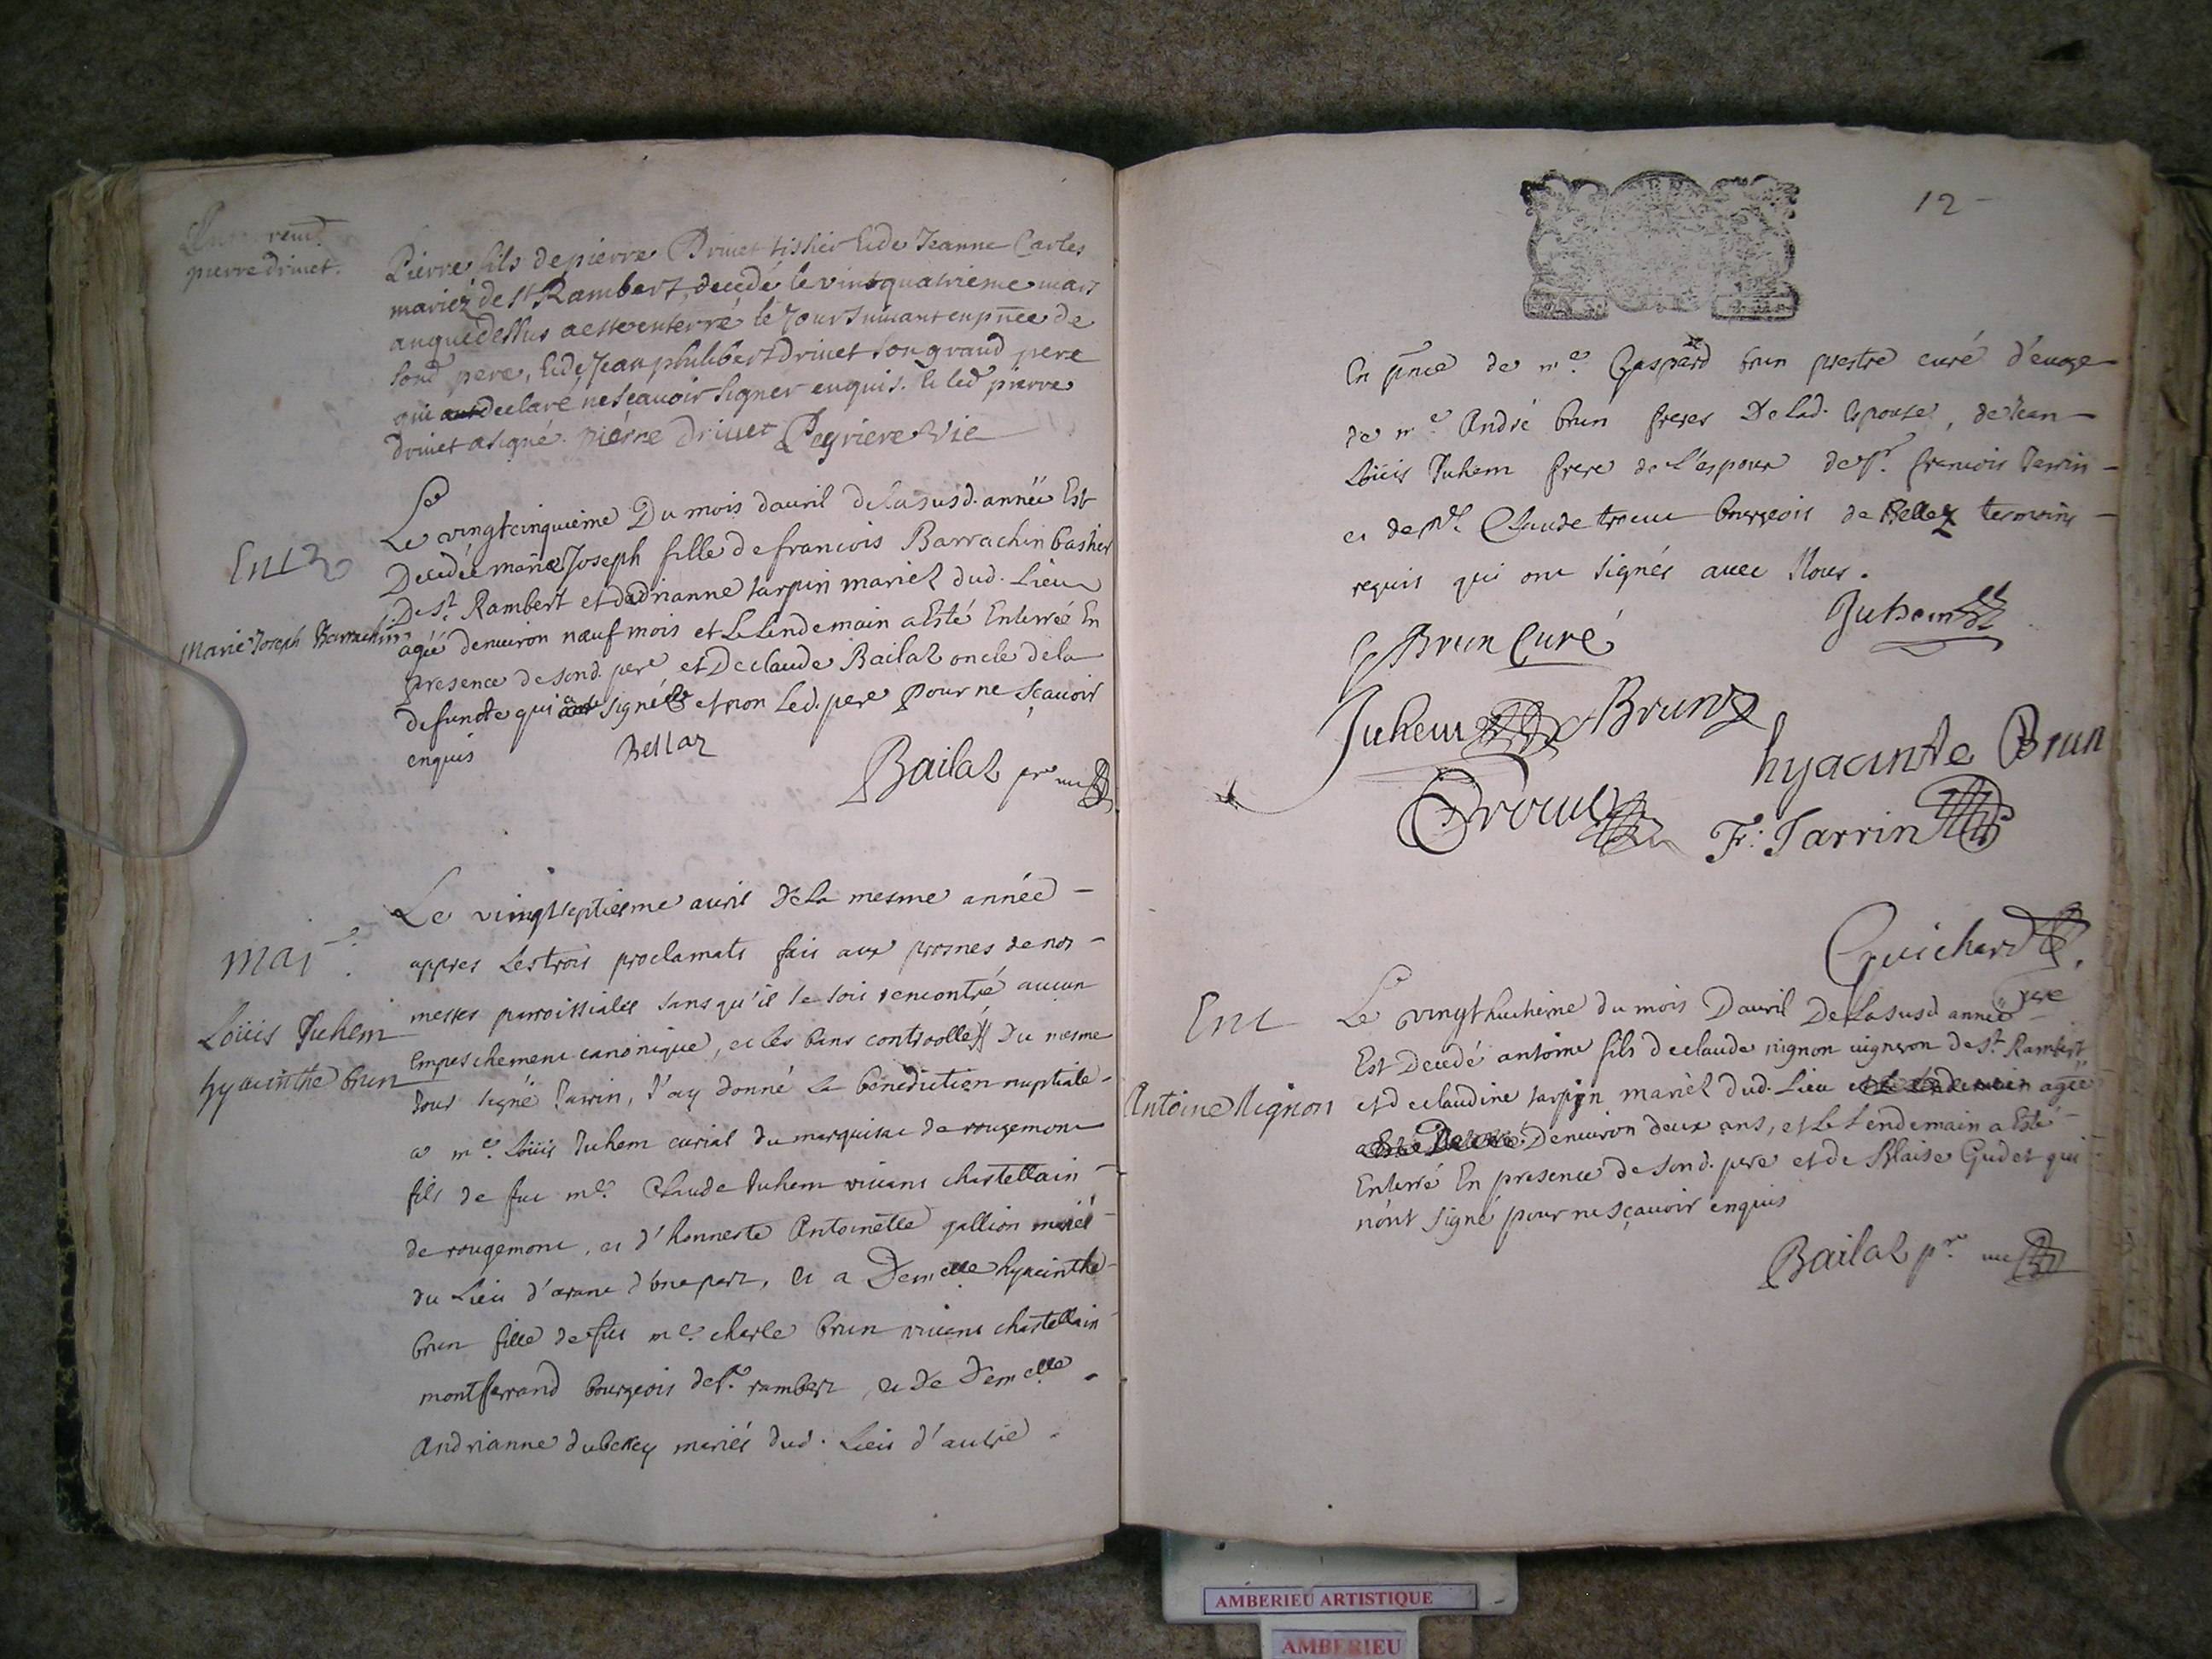 pierre drivet.
Pierre fils de pierre Drivet tissier & de Jeanne Carles
mariéz de st Rambert, decedé le vint quatrieme mars
an que dessus a esté enterré le jour suivant en pnce de
sond pere, & de Jean philibert drivet son grand pere
qui declaré ne scavoir signer enquis. & led pierre
drivet a signé. pierre drivet Peyriere vic
Ent
Marie Joseph Barrachin
Le vingtcinquieme Du mois d'avril de la susd. année Est
Decedée marie Joseph fille de francois Barrachin bastier
De st. Rambert et d'adrianne tarpin mariéz dud. Lieu
agée d'environ neuf mois et Le lendemain a Esté Enterrée En
presence de sond. pere et De claude Bailaz oncle de la
defuncte qui a signé et non Led. pere pour ne sçavoir
enquis Bellaz
Bailaz pre
mar.
Loüis Juhem
hyacinthe brun
Le vingtseptiesme avril De La mesme année
appres Les trois proclamats fais aux prosnes de nos
messes parroissiales sans qu'il se soit rencontré aucun
empeschement canonique, et les bans controollés Du mesme
Jour signé Jarrin, J'ay donné La benediction nuptiale
a me. Loüis Juhem curial du marquisat de rougemont
fils de fut me. Claude Juhem vivant chastellain
de rougemont, et d'honneste Antoinette gallion mariés
du Lieu d'arane d'une part, et a Demelle hyacinthe
brun fille de fut me. charle brun vivant chastellain
montferrand bourgeois de st. rambert, et de Demelle
Andrianne dubettey mariés dud. Lieu d'autre
12
En pnce de me. Gaspard brun prestre curé d'evoge
de me. André brun freres De Lad. espouse, de Jean
Loüis Juhem frere de L'espoux de sr. francois Jarrin
et de sr. Claude trocut bourgeois de Bellez temoins
requis qui ont signés avec Nous.
Juhem
G Brun Curé
Juhem A Brun
hyacinte Brun
Trocut
Fr: Jarrin
Guichard
Ent
Antoine Mignon
Le vingt huitieme du mois D'avril De La susd année
Est Decedé antoine fils de claude mignon vigneron de st. Rambert
et de claudine tarpin mariéz dud. Lieu et Le lendemain agée
a Esté D'environ deux ans, et Le Lendemain a Esté
Enterré En presence de sond. pere et de Blaise Gudet qui
n'ont signé pour ne sçavoir enquis
Bailaz pre
AMBERIEU ARTISTIQUE
AMBERIEU